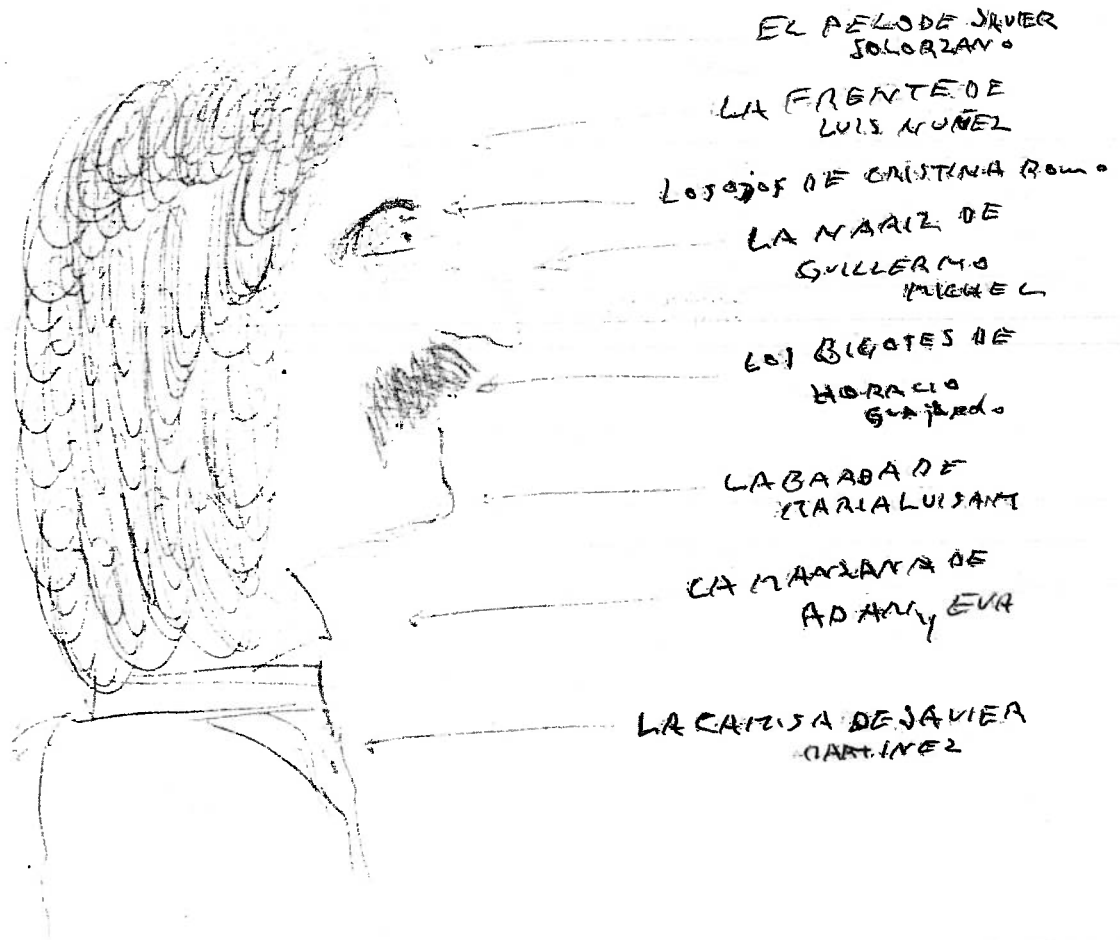 EL PELO DE JAVIER
SOLORZANO
LA FRENTE DE
LUIS NUÑEZ
LOS OJOS DE CRISTINA ROMO
LA NARIZ DE
GUILLERMO
MICHEL
LOS BIGOTES DE
HORACIO
Guajardo
LA BARBA DE
MARIA LUISA
LA MANZANA DE
ADAN y EVA
LA CAMISA DE JAVIER
MARTINEZ